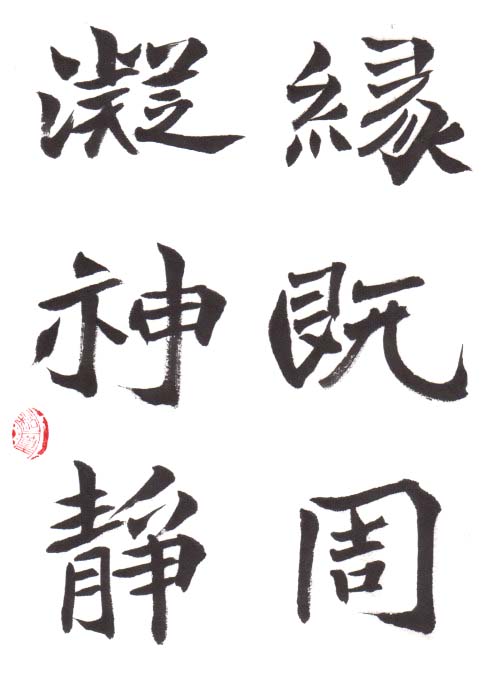 縁既周
凝神靜